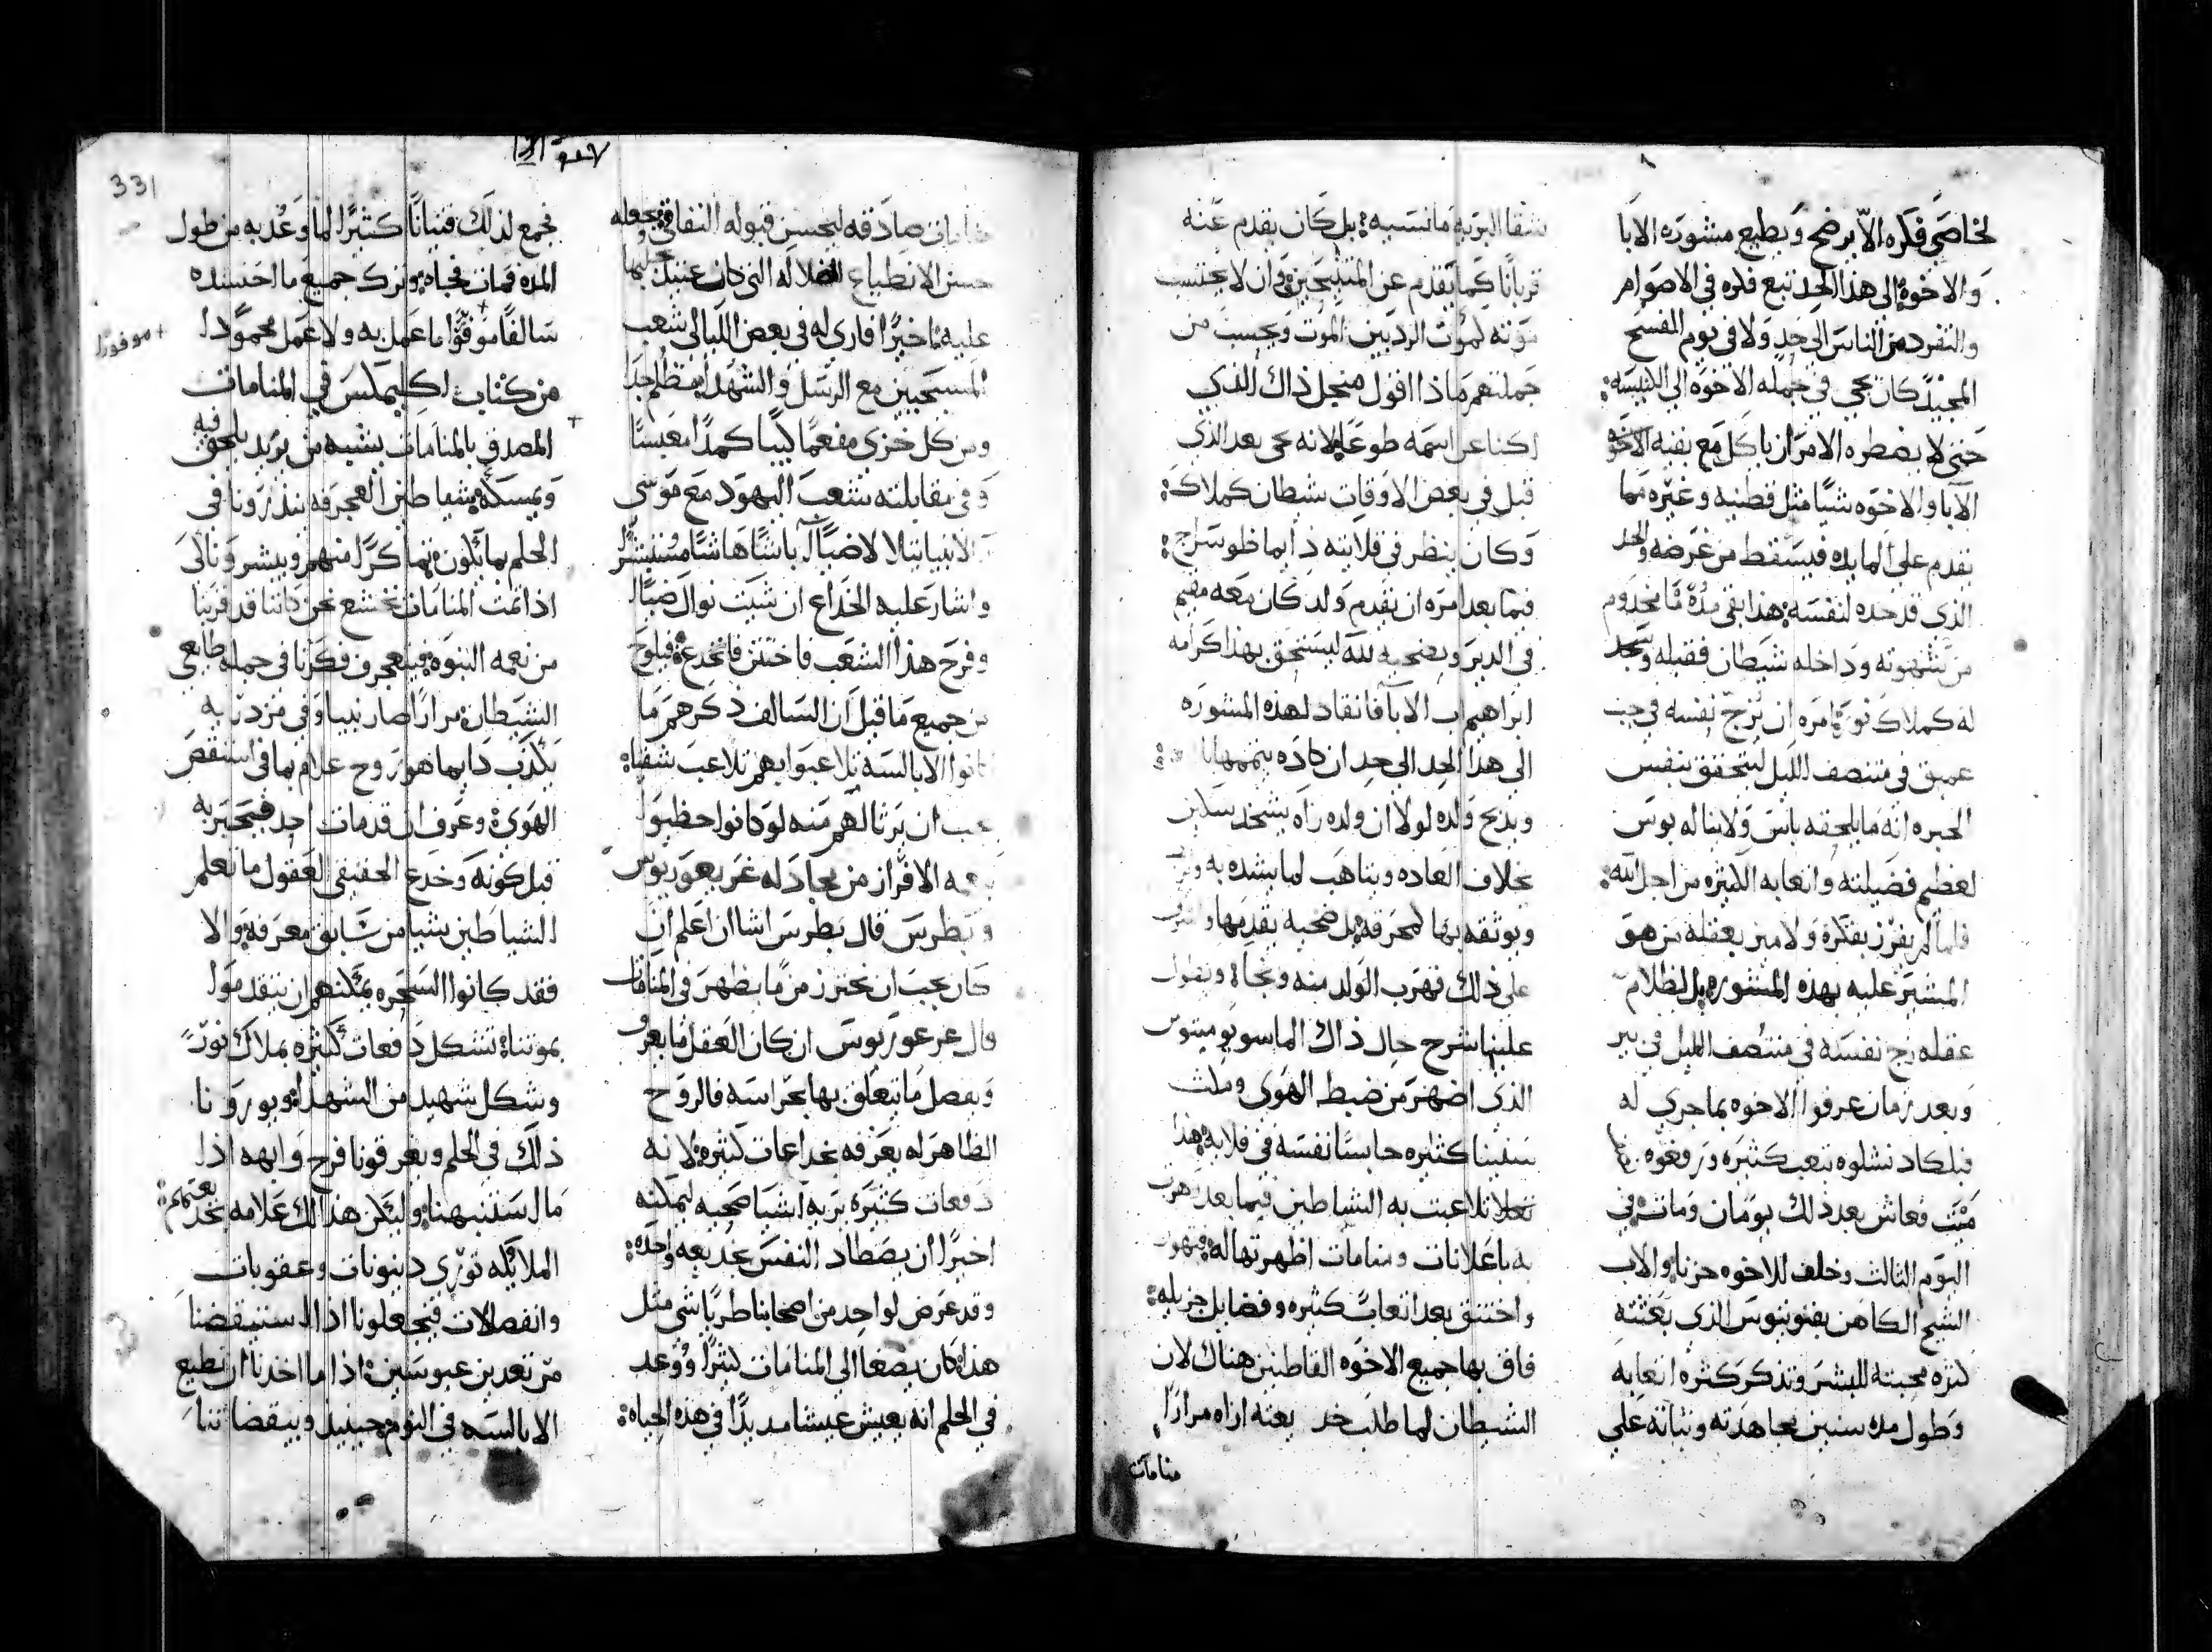 لخاصي فكره الا يرضخ ويطيع مشوره الابا
والاخوه الى هذا الحد تتبع فكره في الاصوام
والتفرد من الناس الى حد ولا في يوم الفسح
المجيد كان يجي في جمله الاخوه الى الكنيسه
حتى لا يضطره الامر ان ياكل مع بقيه الاخوه
الابا والاخوه شيا مثل قطنيه وغيره مما
تقدم على المايده فيسقط من غرضه والحد
الذي قد حده لنفسه هذا بقي مدة ما مخدوم
من شهوته وداخله شيطان فقبله وسجد
له كملاك نور امره ان يزج نفسه في جب
عميق في منتصف الليل ليتحقق بنفس
الخبره انه ما يلحقه باس ولا يناله بوس
لعظم فضيلته واتعابه الكثيره من اجل الله
فلما لم يفرز بفكره ولا ميز بعقله من هو
المشير عليه بهذه المشوره بل لظلام
عقله زج نفسه في منتصف الليل في بير
وبعد زمان عرفوا الاخوه بما جرى له
فبلكاد نشلوه بتعب كثيره ورفعوه
ميت فعاش بعد ذلك يومان ومات في
اليوم الثالث وخلف للاخوه حزنا والاب
الشيخ الكاهن بفنوتيوس الذي بعثته
كثره محبته للبشر وتذكر كثره اتعابه
وطول مده سنين مجاهدته وثباته على
شقا البريه ما نسيه بل كان يقدم عنه
قربانا كما يقدم عن المتنيحين وان لا يحتسب
موته كموت الرديين الموت ويحسب من
جملتهم ماذا اقول من اجل ذاك الذي
اكنا عن اسمه طوعا لانه حي بعد الذي
قبل في بعض الاوقات شيطان كملاك
وكان ينظر في قلايته دايما ضو سراج
فيما بعد امره ان يقدم ولد كان معه مقيم
في الدير ويضحيه لله ليستحق بهذا كرامه
ابراهيم اب الابا فانقاد لهذه المشوره
الى هذا الحد الى حد ان كاده يتممها
ويذبح ولده لولا ان ولده راه يشحذ سكين
بخلاف العاده ويتاهب لما يشده به
ويوثقه بها لمحرقه بل ضحيه يقدمها
على ذلك فهرب الولد منه ونجاه ويطول
علينا شرح حال ذاك الماسوبوميتوس
الذي اضهر من ضبط الهوى ولبث
سنينا كثيره حابسا نفسه في قلايه هذا
تلاعبت به الشياطين فيما بعد
به باعلانات ومنامات اظهرتها له
واختنق بعد اتعابا كثيره وفضايل جزيله
فاق بها جميع الاخوه القاطنين هناك لان
الشيطان لما طلب خديعته اراه مرارا
منامات
331
منامات صادقه ليحسن قبوله النفاق
حسن الانطباع الضلاله التي كان عتيد
عليه اخيرا فارى له في بعض الليالي شعب
المسيحيين مع الرسل والشهدا مظلم جدا
ومن كل خزى مفعما كييبا كمدا معبسا
وفي مقابلته شعب اليهود مع موسى
والانبيا يتلالا ضياا باشا هاشا مستبشرا
واشار عليه الخداع ان شيت نوال ضياا
وفرح هذا الشعب فاختتن فانخدع فيلوح
من جميع ما قيل ان السالف ذكرهم ما
كانوا الابالسه تلاعبوا بهم تلاعب شقيا
يجب ان يرثا لهم منه لو كانوا حظيوا
بنعمه الافراز من مجادله غريغوريوس
وبطرس قال بطرس اشا ان اعلم ان
كان يجب ان نحترز من ما يظهر في المنامات
قال غرغوريوس ان كان العقل ما يعرف
ويفصل ما يتعلق بها بحراسه فالروح
الظاهر له يعرفه بخداعات كثيره لانه
دفعات كثيره يريه اشيا صحيحه ليمكنه
اخيرا ان يصطاد النفس بخديعه واحده
وقد عرض لواحد من اصحابنا طريا شي مثل
هذا كان يصغا الى المنامات كثيرا ووعد
في الحلم انه يعيش عيشا مديدا في هذه الحياه
فجمع لذلك قنيانا كثيرا لما وعد به من طول
المده فمات فجاه وترك جميع ما احتشده
سالفا موفوا ما عمل به ولا عمل محمودا
+ موفورا
من كتاب اكليمكس في المنامات
المصدق بالمنامات يشبه من يريد يلحق فيه
ويمسكه شياطين العجرفه ينذرونا في
الحلم بما يكون مكرا منهم ويبشرونا لكي
اذا تمت المنامات نخشع نحن كاننا قد قربنا
من نعمه النبوه فيتعجرف فكرنا في جمله طايعي
الشيطان مرارا صار نبيا وفي مزدريه
يكذب دايما هو روح علام بما في استنقص
الهوى وعرف ان قد مات احد فيخبر به
قبل كونه وخدع الخفيفي العقول ما تعلم
الشياطين شيا من سابق معرفه والا
فقد كانوا السحره يمكنهم ان ينقدموا
بموتنا تشكل دفعات كثيره بملاك نور
وشكل شهيد من الشهدا ويورونا
ذلك في الحلم ويغرقونا فرح وابهه اذا
ما استنبهنا وليكن هذا لك علامه
الملايكه توري دينونات وعقوبات
وانفصالات فتجعلونا اذا استيقضنا
مرتعدين عبوسين اذا ما اخذنا ان نطيع
الابالسه في النوم حينيذ وبيقضاتنا